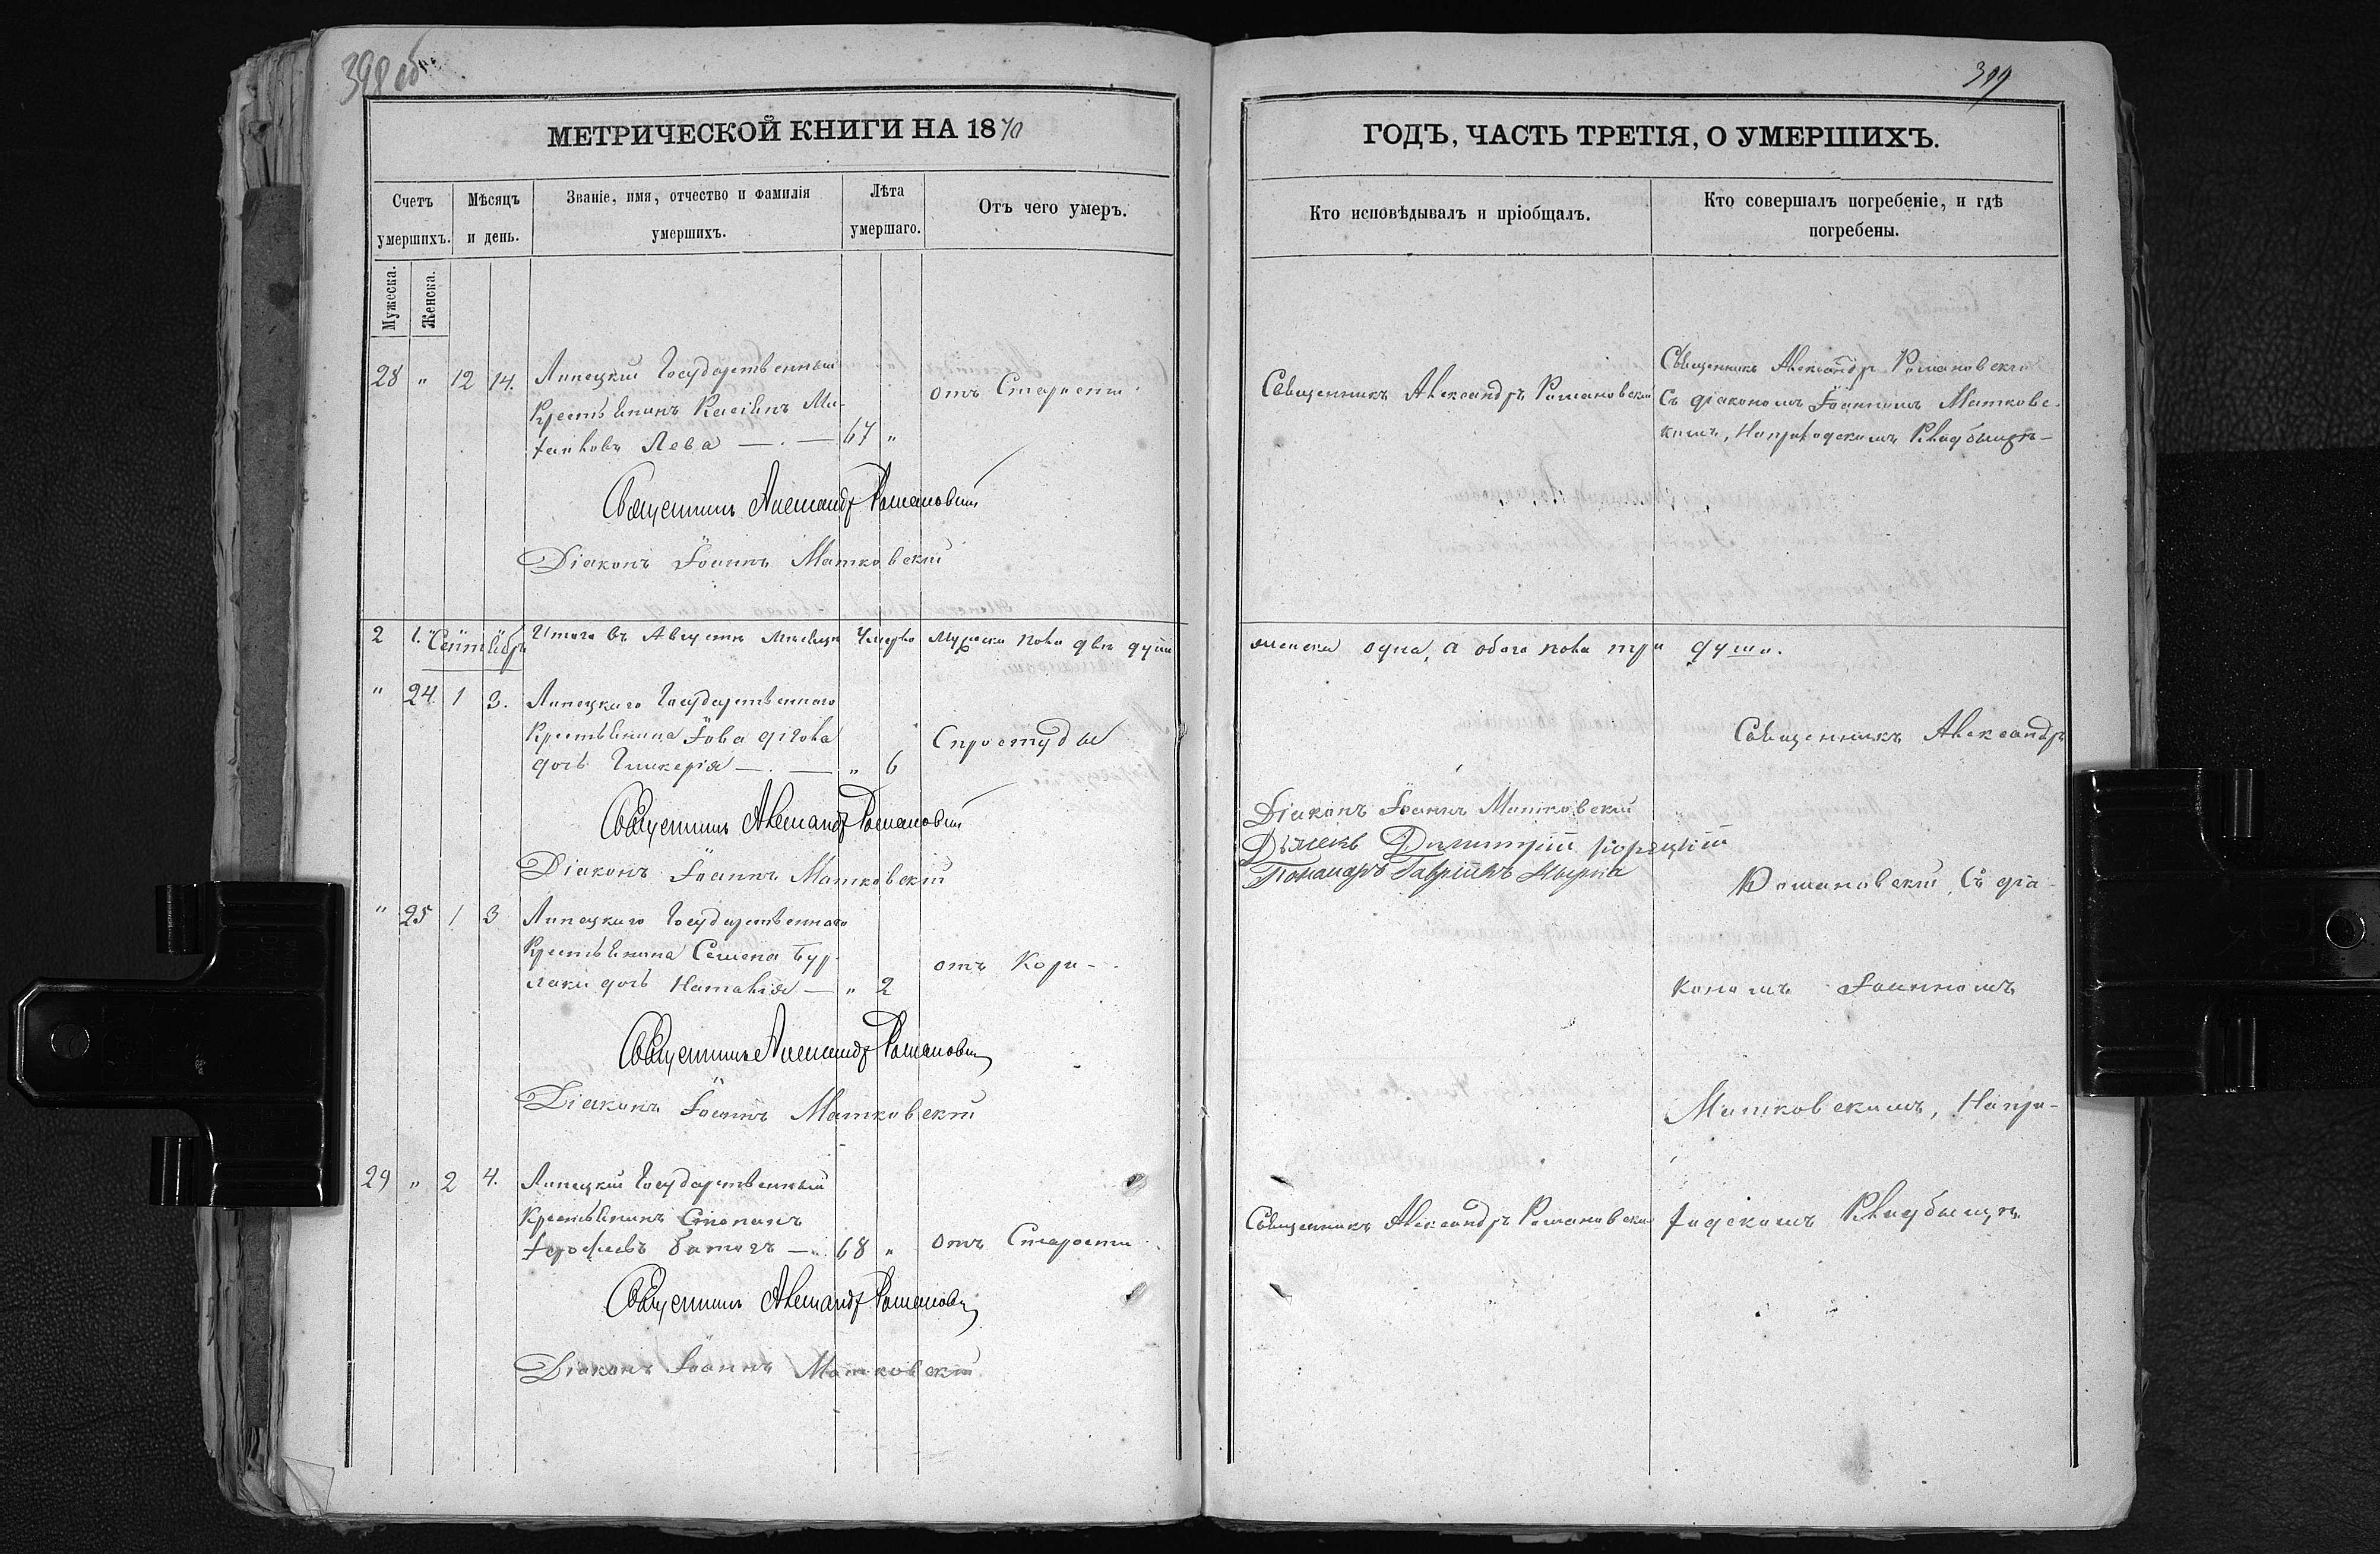 398 об
399
МЕТРИЧЕСКОЙ КНИГИ НА 1870
ГОДЪ, ЧАСТЬ ТРЕТІЯ, О УМЕРШИХЪ.
Счетъ умершихъ.
Мужеска.
Женска.
Мѣсяцъ и день.
Званіе, имя, отчество и фамилія умершихъ.
Лѣта умершаго.
Отъ чего умеръ.
Кто исповѣдывалъ и пріобщалъ.
Кто совершалъ погребеніе, и гдѣ погребены.
28 " 12 14. Липецкій Государственный
Крестьянинъ
Лева 67 "
отъ Старости
Священникъ Александръ Романовскій
Священникъ Александръ Романовскій
Съ діакономъ Іоанномъ Матковс-
кимъ, На приходскомъ Кладбищѣ
Священникъ Александр Романовскій
Діаконъ Іоаннъ Матковскій
2 1. Итого въ Августѣ мѣсяцѣ Умерло мужеска пола двѣ души
женска одна, а обоего пола три души.
Сентябрь
" 24. 1 3. Липецкаго Государственнаго
Крестьянина Іова
дочь Гликерія " 6
Спростуды
Священникъ Александръ
Священникъ Александр Романовскій
Діаконъ Іоаннъ Матковскій
Діаконъ Іоаннъ Матковскій
Дьячекъ Димитрій
Пономарь Гавріилъ
Романовскій, Съ діа-
" 25 1 3 Липецкаго Государственнаго
Крестьянина Семена Бур-
лаки дочь Наталія " 2
отъ Кори
кономъ Іоанномъ
Священникъ Александр Романовскій
Діаконъ Іоаннъ Матковскій
Матковскимъ, На при-
29 " 2 4. Липецкій Государственный
Крестьянинъ Степанъ
68 "
отъ Старости
Священникъ Александръ Романовскій
ходскомъ Кладбищѣ
Священникъ Александр Романовскій
Діаконъ Іоаннъ Матковскій